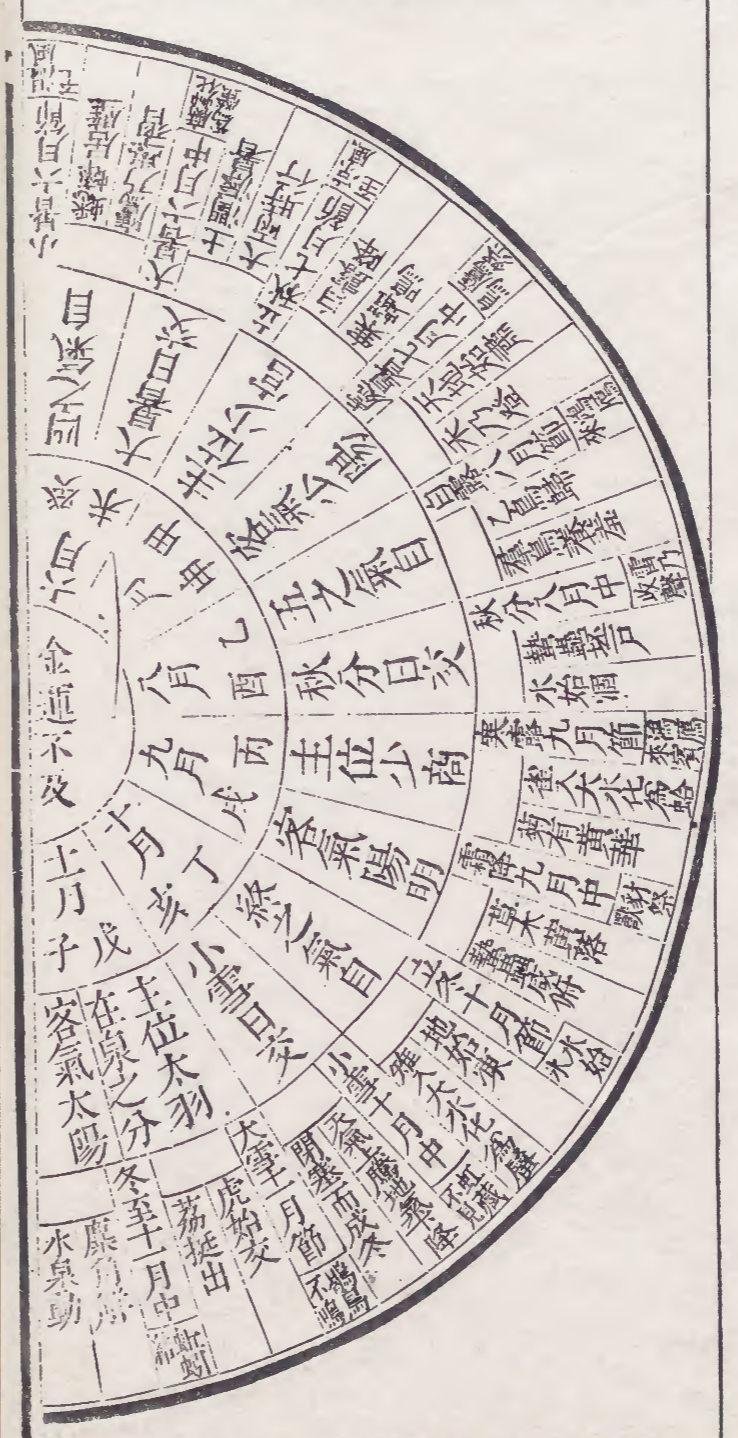 金運不及
六月
未
七月
申
八月
乙
酉
九月
丙
戌
十月
丁
亥
十一月
戊
子
四之氣自
大暑日交
主位少宮
五之氣自
秋分日交
主位少商
客氣陽明
終之氣自
小雪日交
主位太羽
在泉之分
客氣太陽
小暑六月節
溫風
蟋蟀居壁
鷹乃學習
大暑六月中
土潤溽暑
大雨時行
立秋七月節
涼風至
白露降
寒蟬鳴
處暑七月中
天地始肅
禾乃登
白露八月節
鴻鴈來
玄鳥歸
羣鳥養羞
秋分八月中
雷乃收聲
蟄蟲坯戶
水始涸
寒露九月節
鴻鴈來賓
雀入大水化為蛤
菊有黃華
霜降九月中
豺祭獸
草木黃落
蟄蟲咸俯
立冬十月節
水始冰
地始凍
雉入大水化為蜃
小雪十月中
虹藏不見
天氣上騰地氣降
閉塞而成冬
大雪十一月節
鶡鳥不鳴
虎始交
荔挺出
冬至十一月中
蚯蚓結
麋角解
水泉動